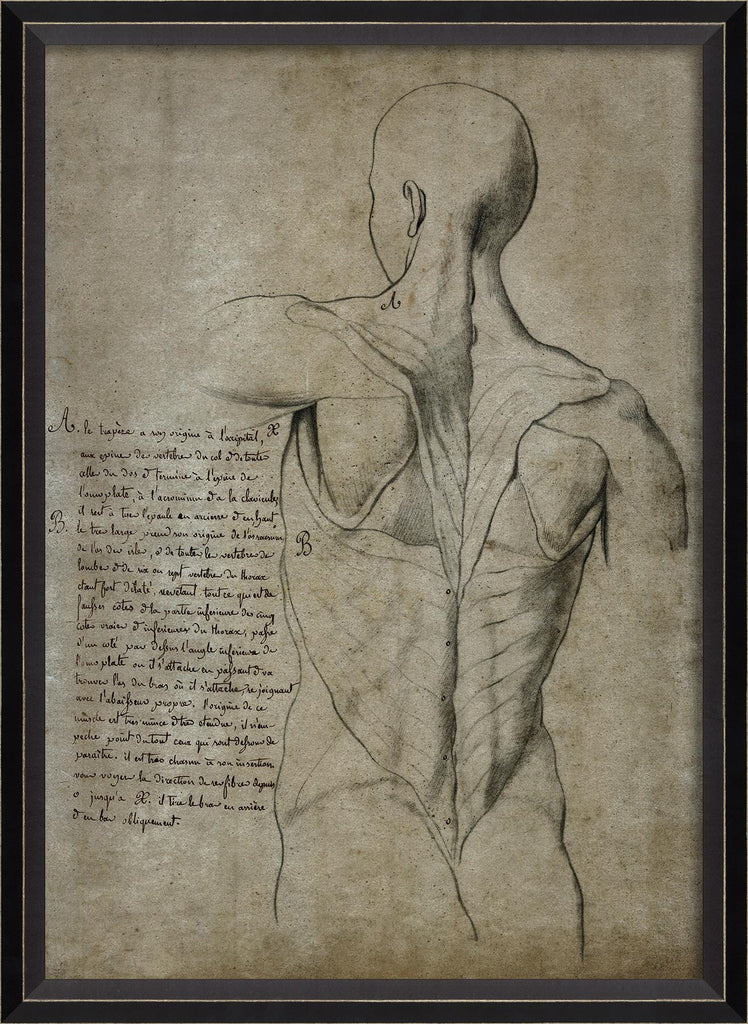 A
A. le trapèze a son origine à l'occipital, X
aux epine de vertebre du col et de toute
celle du dos et termine à l'epine de
l'omoplate, à l'acromium et a la clavicule,
il sert à tirer l'epaule en arriere et en haut
B. le tres large prend son origine de l'os sacrum
de l'os des isles, et de toute le vertebre de
lombe et de six ou sept vertebre du thorax
etant fort dilaté, revetant tout ce qui est de
fausses côtes et la partie inferieure de cinq
cotes vraies et inferieures du thorax, passe
d'un coté par dessus l'angle inferieure de
l'omoplate ou il s'attache en passant et va
trouver l'os du bras où il s'attache, se joignant
avec l'abaisseur propre. l'origine de ce
muscle est tres mince et tres etendue, il n'em-
peche point du tout ceux qui sont dessous de
paraître. il est tres charnu à son insertion
vous voyez la direction de ses fibre depuis
o jusqu'a X. il tire le bras en arrière
et en bas obliquement.
B